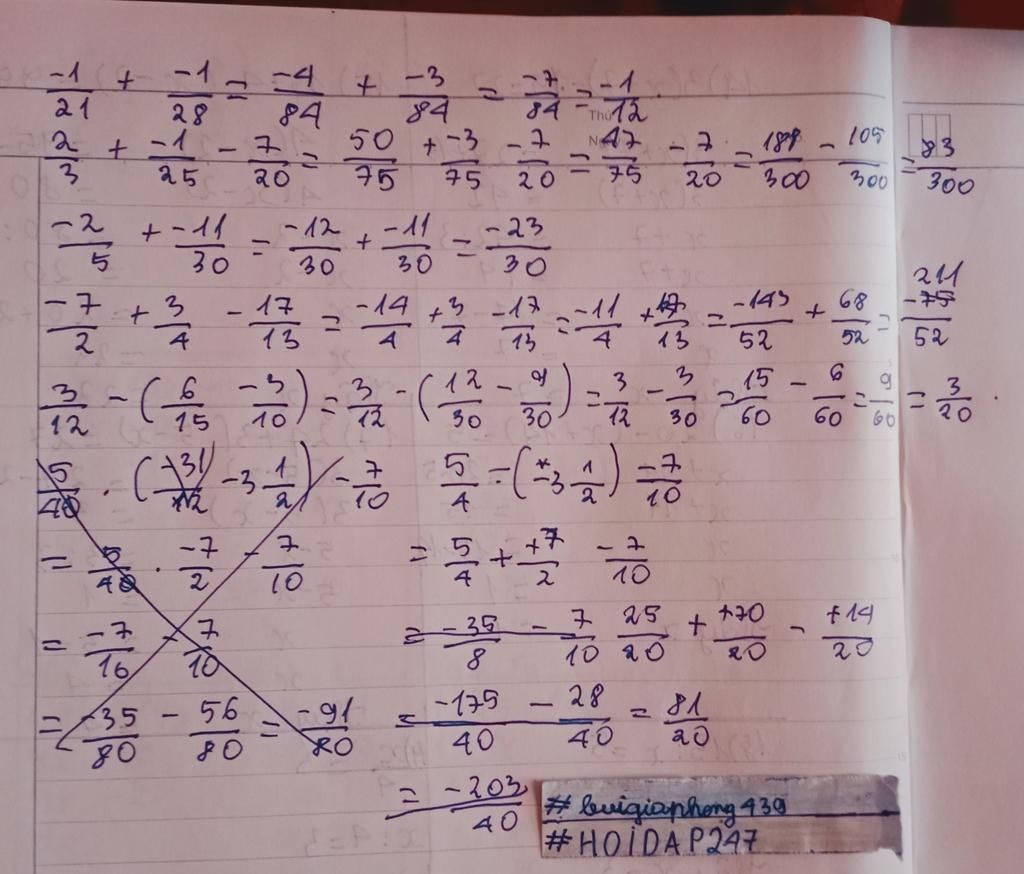 -1/21 + -1/28 = -4/84 + -3/84 = -7/84 = -1/12.
2/3 + -1/25 - 7/20 = 50/75 + -3/75 - 7/20 = 47/75 - 7/20 = 188/300 - 105/300 = 83/300
-2/5 + -11/30 = -12/30 + -11/30 = -23/30
-7/2 + 3/4 - 17/13 = -14/4 + 3/4 - 17/13 = -11/4 + 17/13 = -143/52 + 68/52 = 211/52
3/12 - (6/15 - 3/10) = 3/12 - (12/30 - 9/30) = 3/12 - 3/30 = 15/60 - 6/60 = 9/60 = 3/20.
5/40 . (-31/12 - 3 1/2) - 7/10 5/4 - (-3 1/2) - 7/10
= 5/40 . -7/2 - 7/10 = 5/4 + +7/2 - 7/10
= -7/16 - 7/10 = -35/8 - 7/10 25/20 + +70/20 - +14/20
= -35/80 - 56/80 = -91/80 = -175/40 - 28/40 = 81/20
= -203/40
# buigiaphong439
# HOIDAP247